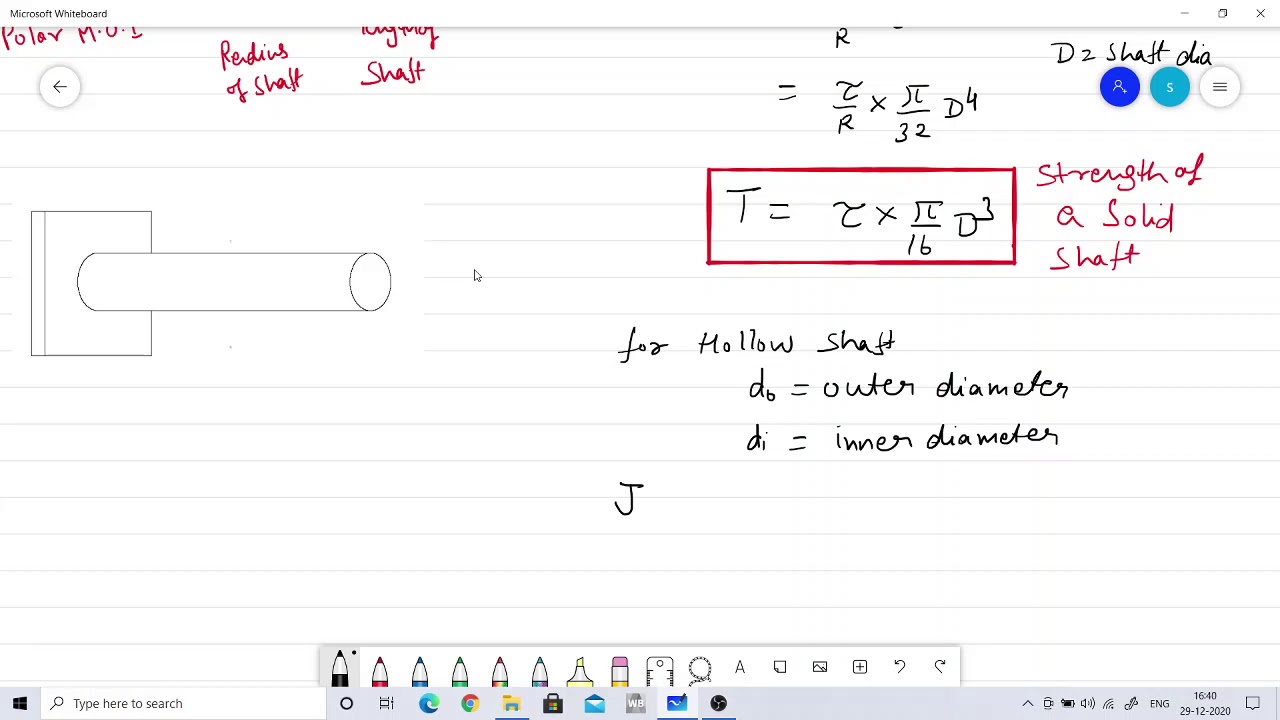 Microsoft Whiteboard
Polar M.O.I
Radius
of Shaft
length of
Shaft
R
D = Shaft dia
S
= τ/R × π/32 D⁴
T = τ × π/16 D³
Strength of
a Solid
Shaft
for Hollow Shaft
do = outer diameter
di = inner diameter
J
A
Type here to search
WB
ENG
16:40
29-12-2020